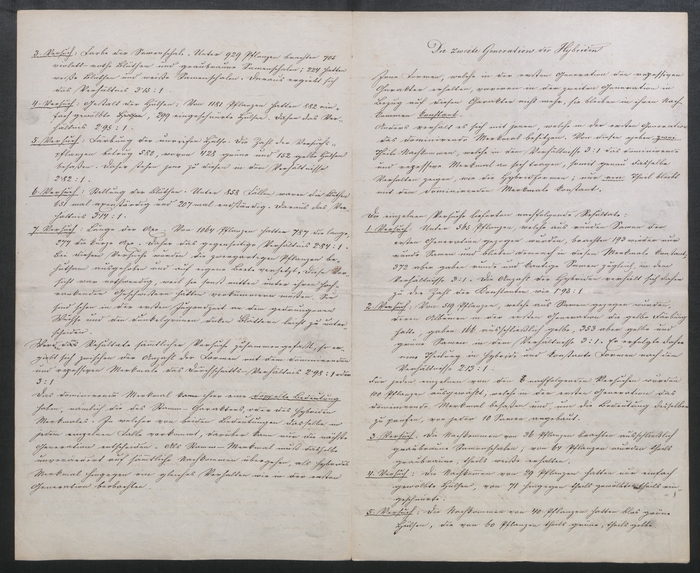 3. Versuch: Farbe der Samenschale. Unter 929 Pflanzen brachten 705
violett-rothe Blüthen und graubraune Samenschalen; 224 hatten
weiße Blüthen und weiße Samenschalen. Daraus ergibt sich
das Verhältniss 3·15 : 1.
4. Versuch: Gestalt der Hülsen. Von 1181 Pflanzen hatten 882 ein-
fach gewölbte Hülsen, 299 eingeschnürte Hülsen. Daher das Ver-
hältniss 2·95 : 1.
5. Versuch: Färbung der unreifen Hülse. Die Zahl der Versuchs-
pflanzen betrug 580, wovon 428 grüne und 152 gelbe Hülsen
hatten. Daher stehen jene zu diesen in dem Verhältnisse
2·82 : 1.
6. Versuch: Stellung der Blüthen. Unter 858 Fällen waren die Blüthen
651 mal axenständig und 207 mal endständig. Daraus das Ver-
hältniss 3·14 : 1.
7. Versuch: Länge der Axe. Von 1064 Pflanzen hatten 787 die lange,
277 die kurze Axe. Daher das gegenseitige Verhältniss 2·84 : 1.
Bei diesem Versuche wurden die zwergartigen Pflanzen be-
hutsam ausgehoben und auf eigene Beete versetzt. Diese Vor-
sicht war nothwendig, weil sie sonst mitten unter ihren hoch-
rankenden Geschwistern hätten verkümmern müssen. Sie
sind schon in der ersten Jugendzeit an dem gedrungenen
Wuchse und den dunkelgrünen dicken Blättern leicht zu unter-
scheiden.
Werden die Resultate sämmtlicher Versuche zusammengefasst, so er-
gibt sich zwischen der Anzahl der Formen mit dem dominirenden
und recessiven Merkmale das Durchschnitts-Verhältniss 2·98 : 1 oder
3 : 1.
Das dominirende Merkmal kann hier eine doppelte Bedeutung
haben, nämlich die des Stamm-Charakters, oder des Hybriden
Merkmales. In welcher von beiden Bedeutungen dasselbe in
jedem einzelnen Falle vorkommt, darüber kann nur die nächste
Generation entscheiden. Als Stamm-Merkmal muß dasselbe
unverändert auf sämmtliche Nachkommen übergehen, als hybrides
Merkmal hingegen ein gleiches Verhalten wie in der ersten
Generation beobachten.
Die zweite Generation der Hybriden
Jene Formen, welche in der ersten Generation den recessiven
Charakter erhalten, variiren in der zweiten Generation in
Bezug auf diesen Charakter nicht mehr, sie bleiben in ihren Nach-
kommen constant.
Anders verhält es sich mit jenen, welche in der ersten Generation
das dominirende Merkmal besitzen. Von diesen geben zwei
Theile Nachkommen, welche in dem Verhältnisse 3 : 1 das dominirende
und recessive Merkmal an sich tragen, somit genau dasselbe
Verhalten zeigen, wie die Hybridformen; nur ein Theil bleibt
mit dem dominirenden Merkmale constant.
Die einzelnen Versuche lieferten nachfolgende Resultate:
1. Versuch. Unter 565 Pflanzen, welche aus runden Samen der
ersten Generation gezogen wurden, brachten 193 wieder nur
runde Samen und blieben demnach in diesem Merkmale constant,
372 aber gaben runde und kantige Samen zugleich, in dem
Verhältnisse 3 : 1. Die Anzahl der Hybriden verhielt sich daher
zu der Zahl der Constanten wie 1·93 : 1.
2. Versuch. Von 519 Pflanzen, welche aus Samen gezogen wurden,
deren Albumen in der ersten Generation die gelbe Färbung
hatte, gaben 166 ausschließlich gelbe, 353 aber gelbe und
grüne Samen in dem Verhältnisse 3 : 1. Es erfolgte daher
eine Theilung in hybride und constante Formen nach dem
Verhältnisse 2·13 : 1.
Für jeden einzelnen von den nachfolgenden Versuchen wurden
100 Pflanzen ausgewählt, welche in der ersten Generation das
dominirende Merkmal besaßen und, um die Bedeutung desselben
zu prüfen, von jeder 10 Samen angebaut.
3. Versuch: Die Nachkommen von 36 Pflanzen brachten ausschließlich
graubraune Samenschalen; von 64 Pflanzen wurden theils
graubraune, theils weiße erhalten.
4. Versuch: Die Nachkommen von 29 Pflanzen hatten nur einfach
gewölbte Hülsen, von 71 hingegen theils gewölbte, theils ein-
geschnürte.
5. Versuch: Die Nachkommen von 40 Pflanzen hatten blos grüne
Hülsen, die von 60 Pflanzen theils grüne, theils gelbe.